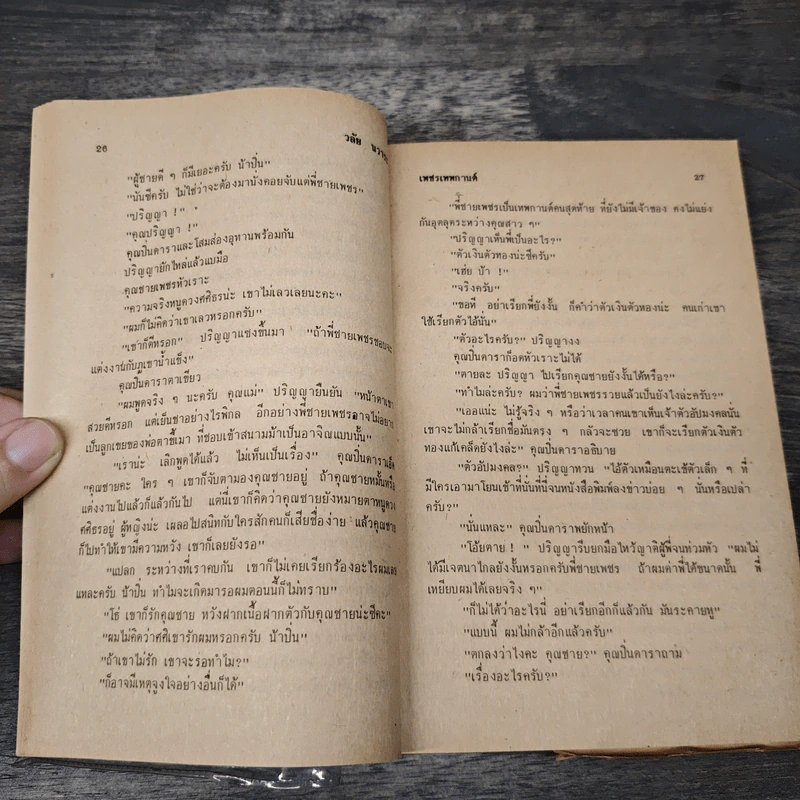 26
วลัย
"ผู้ชายดี ๆ ก็มีเยอะครับ น้าปิ่น"
"นั่นซีครับ ไม่ใช่ว่าจะต้องมานั่งคอยจับแต่พี่ชายเพชร"
"ปริญญา !"
"คุณปริญญา !"
คุณปิ่นดาราและโสมส่องอุทานพร้อมกัน
ปริญญายักไหล่แล้วแบมือ
คุณชายเพชรหัวเราะ
"ความจริงหนูดวงศศิธรน่ะ เขาไม่เลวเลยนะคะ"
"ผมก็ไม่คิดว่าเขาเลวหรอกครับ"
"เขาก็ดีหรอก" ปริญญาแซงขึ้นมา "ถ้าพี่ชายเพชรชอบจะ
แต่งงานกับภูเขาน้ำแข็ง"
คุณปิ่นดาราตาเขียว
"ผมพูดจริง ๆ นะครับ คุณแม่" ปริญญายืนยัน "หน้าตาเขา
สวยดีหรอก แต่เย็นชาอย่างไรพิกล อีกอย่างพี่ชายเพชรอาจไม่อยาก
เป็นลูกเขยของพ่อตาขี้เมา ที่ชอบเข้าสนามม้าเป็นอาจิณแบบนั้น"
"เราน่ะ เลิกพูดได้แล้ว ไม่เห็นเป็นเรื่อง" คุณปิ่นดาราเอ็ด
"คุณชายคะ ใคร ๆ เขาก็จับตามองคุณชายอยู่ ถ้าคุณชายหมั้นหรือ
แต่งงานไปแล้วก็แล้วกันไป แต่นี่เขาก็คิดว่าคุณชายยังหมายตาหนูดวง
ศศิธรอยู่ ผู้หญิงน่ะ เผลอไปสนิทกับใครสักคนก็เสียชื่อง่าย แล้วคุณชาย
ก็ไปทำให้เขามีความหวัง เขาก็เลยยังรอ"
"แปลก ระหว่างที่เราคบกัน เขาก็ไม่เคยเรียกร้องอะไรผมเลย
แหละครับ น้าปิ่น ทำไมจะเกิดมารอผมตอนนี้ก็ไม่ทราบ"
"โธ่ เขาก็รักคุณชาย หวังฝากเนื้อฝากตัวกับคุณชายน่ะซีคะ"
"ผมไม่คิดว่าศศิเขารักผมหรอกครับ น้าปิ่น"
"ถ้าเขาไม่รัก เขาจะรอทำไม?"
"ก็อาจมีเหตุจูงใจอย่างอื่นก็ได้"
เพชรเทพกานต์
27
"พี่ชายเพชรเป็นเทพกานต์คนสุดท้าย ที่ยังไม่มีเจ้าของ คงไม่แย่ง
กันอุตลุดระหว่างคุณสาว ๆ"
"ปริญญาเห็นพี่เป็นอะไร?"
"ตัวเงินตัวทองน่ะซีครับ"
"เฮ่ย บ้า !"
"จริงครับ"
"ขอที อย่าเรียกพี่ยังงั้น ก็คำว่าตัวเงินตัวทองน่ะ คนเก่าเขา
ใช้เรียกตัวไอ้นั่น"
"ตัวอะไรครับ?" ปริญญางง
คุณปิ่นดาราก็อดหัวเราะไม่ได้
"ตายละ ปริญญา ไปเรียกคุณชายยังงั้นได้หรือ?"
"ทำไมล่ะครับ? ผมว่าพี่ชายเพชรรวยแล้วเป็นยังไงล่ะครับ?"
"เออแน่ะ ไม่รู้จริง ๆ หรือว่าเวลาคนเขาเห็นเจ้าตัวอัปมงคลนั่น
เขาจะไม่กล้าเรียกชื่อมันตรง ๆ กลัวจะซวย เขาก็จะเรียกตัวเงินตัว
ทองแก้เคล็ดยังไงล่ะ" คุณปิ่นดาราอธิบาย
"ตัวอัปมงคล?" ปริญญาทวน "ไอ้ตัวเหมือนตะเข้ตัวเล็ก ๆ ที่
มีใครเอามาโยนเข้าที่นั่นที่นี่จนหนังสือพิมพ์ลงข่าวบ่อย ๆ นั่นหรือเปล่า
ครับ?"
"นั่นแหละ" คุณปิ่นดาราพยักหน้า
"โอ้ยตาย !" ปริญญารีบยกมือไหว้ญาติผู้พี่จนท่วมหัว "ผมไม่
ได้มีเจตนาไกลยังงั้นหรอกครับพี่ชายเพชร ถ้าผมด่าพี่ได้ขนาดนั้น พี่
เหยียบผมได้เลยจริง ๆ"
"ก็ไม่ได้ว่าอะไรนี่ อย่าเรียกอีกก็แล้วกัน มันระคายหู"
"แบบนี้ ผมไม่กล้าอีกแล้วครับ"
"ตกลงว่าไงคะ คุณชาย?" คุณปิ่นดาราถาม
"เรื่องอะไรครับ?"